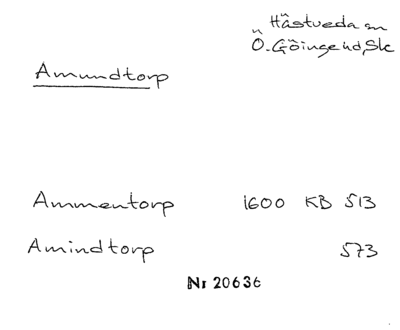 Hästveda sn
Ö. Göinge hd, Sk
Amundtorp
Ammentorp 1600 KB 513
Amindtorp 573
Nr 20636